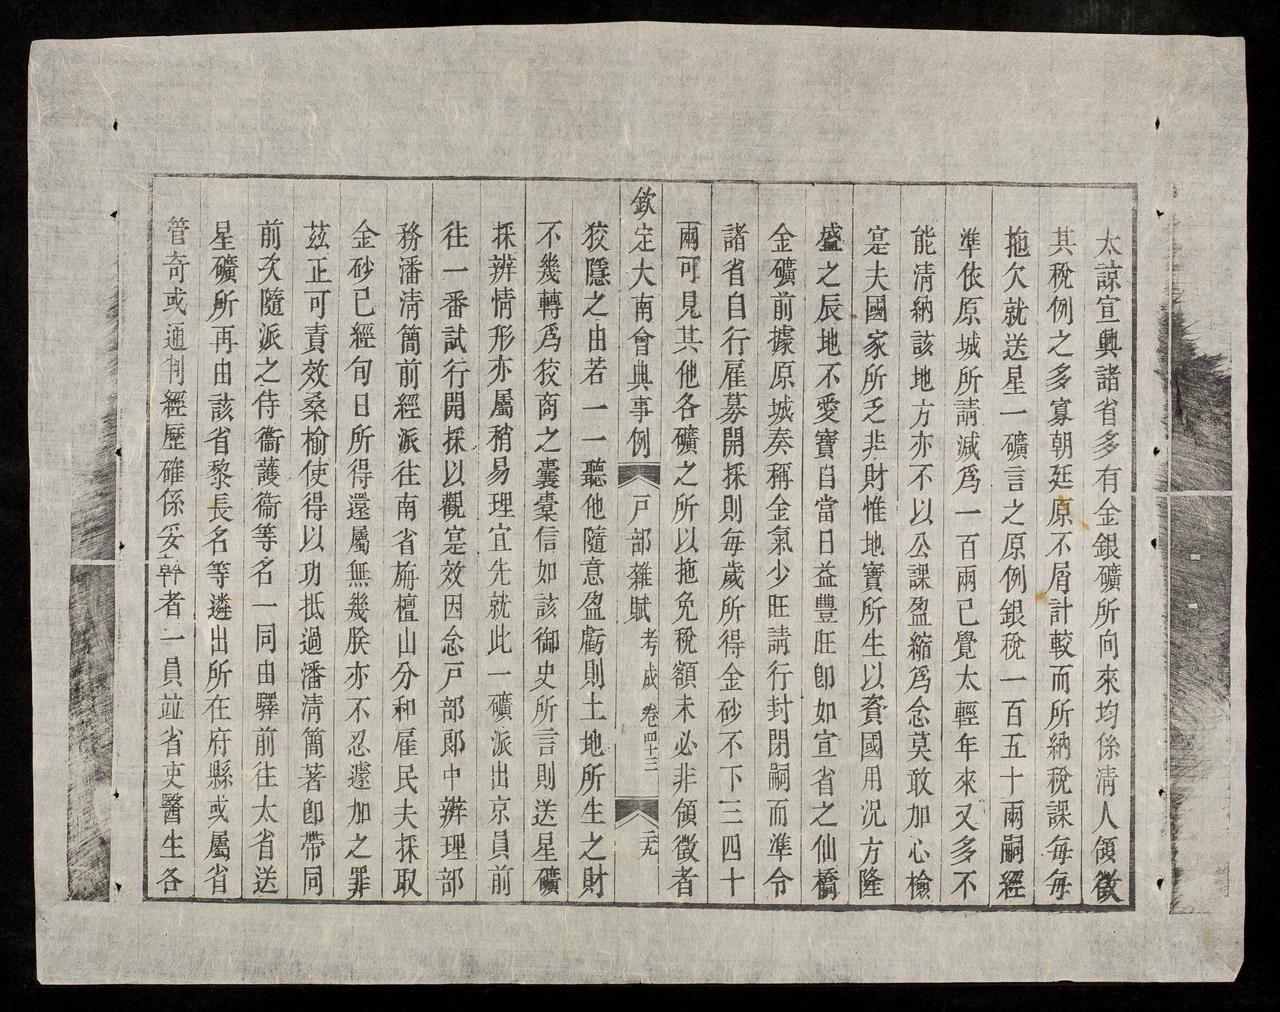 太諒宣興諸省多有金銀礦所向來均係清人領徵
其稅例之多寡朝廷原不屑計較而所納稅課每每
拖欠就送星一礦言之原例銀稅一百五十兩嗣經
準依原城所請減爲一百兩已覺太輕年來又多不
能清納該地方亦不以公課盈縮爲念莫敢加心檢
寔夫國家所乏非財惟地寶所生以資國用況方隆
盛之辰地不愛寶自當日益豐旺卽如宣省之仙橋
金礦前據原城奏稱金氣少旺請行封閉嗣而準令
諸省自行雇募開採則每歲所得金砂不下三四十
兩可見其他各礦之所以拖免稅額未必非領徵者
欽定大南會典事例 戸部雜賦 考成 卷四十三 二九
狡隱之由若一一聽他隨意盈虧則土地所生之財
不幾轉爲狡商之囊橐信如該御史所言則送星礦
採辨情形亦屬稍易理宜先就此一礦派出京員前
往一番試行開採以觀寔效因念戸部郞中辨理部
務潘清簡前經派往南省旃檀山分和雇民夫採取
金砂已經旬日所得還屬無幾朕亦不忍遽加之罪
茲正可責效桑榆使得以功抵過潘清簡著卽帶同
前次隨派之侍衞護衞等名一同由驛前往太省送
星礦所再由該省黎長名等遴出所在府縣或屬省
管奇或通判經歷確係妥幹者一員並省吏醫生各